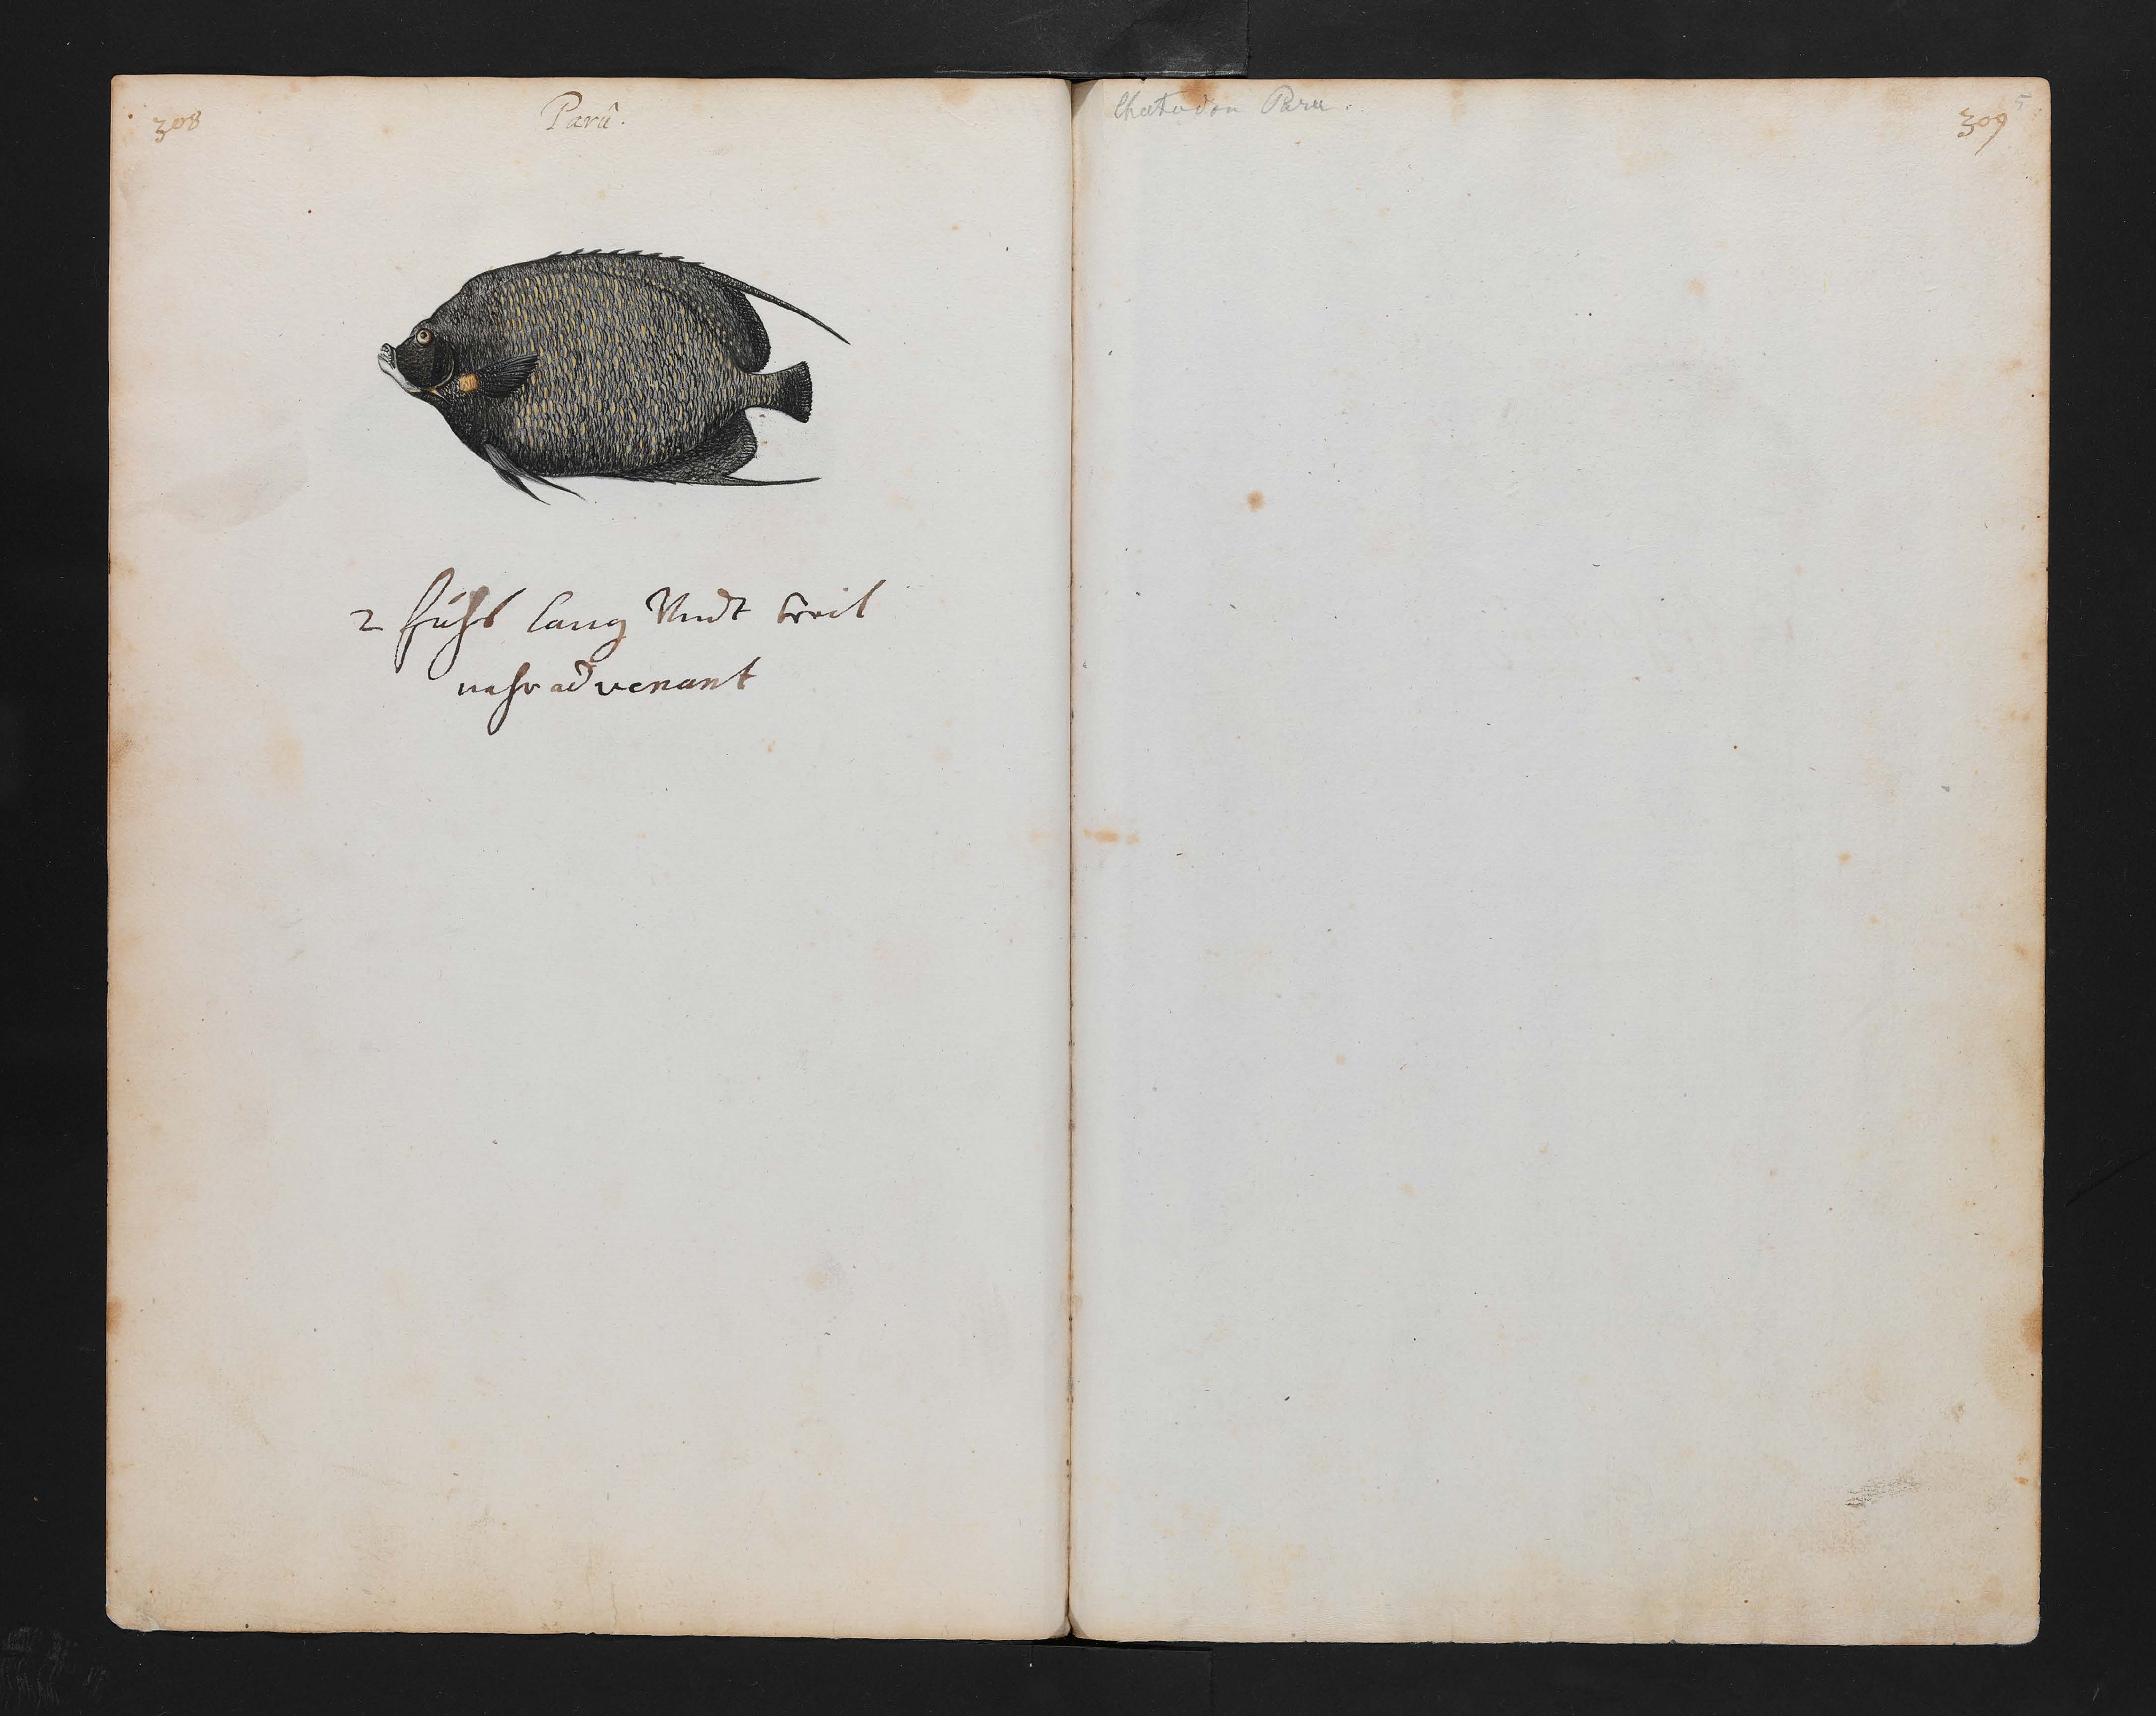 308
Parû.
2 fuhs lang Vndt breit
nahr advenant
Chætodon Paru.
5
309